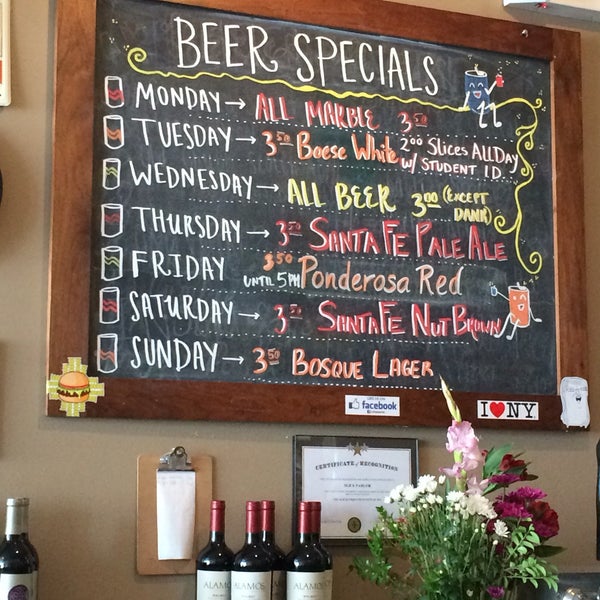 BEER SPECIALS
MONDAY → ALL MARBLE 3.50
TUESDAY → 3.50 Boese White 2.00 Slices ALL Day
w/ STUDENT I.D.
WEDNESDAY → ALL BEER 3.00 (EXCEPT
DANK)
THURSDAY → 3.50 SANTA FE PALE ALE
FRIDAY 3.50 Ponderosa Red
UNTIL 5PM
SATURDAY → 3.50 SANTA FE NUT BROWN
SUNDAY → 3.50 BOSQUE LAGER
facebook
I ♥ NY
CERTIFICATE of RECOGNITION
ALAMOS
ALAMOS
ALAMOS